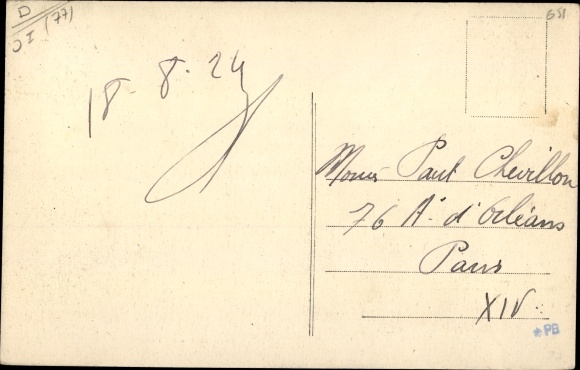 D
JI (77)
651
18-8-24
Monsr Paul Chevillon
76 Ar d'Orléans
Paris
XIV
*PB